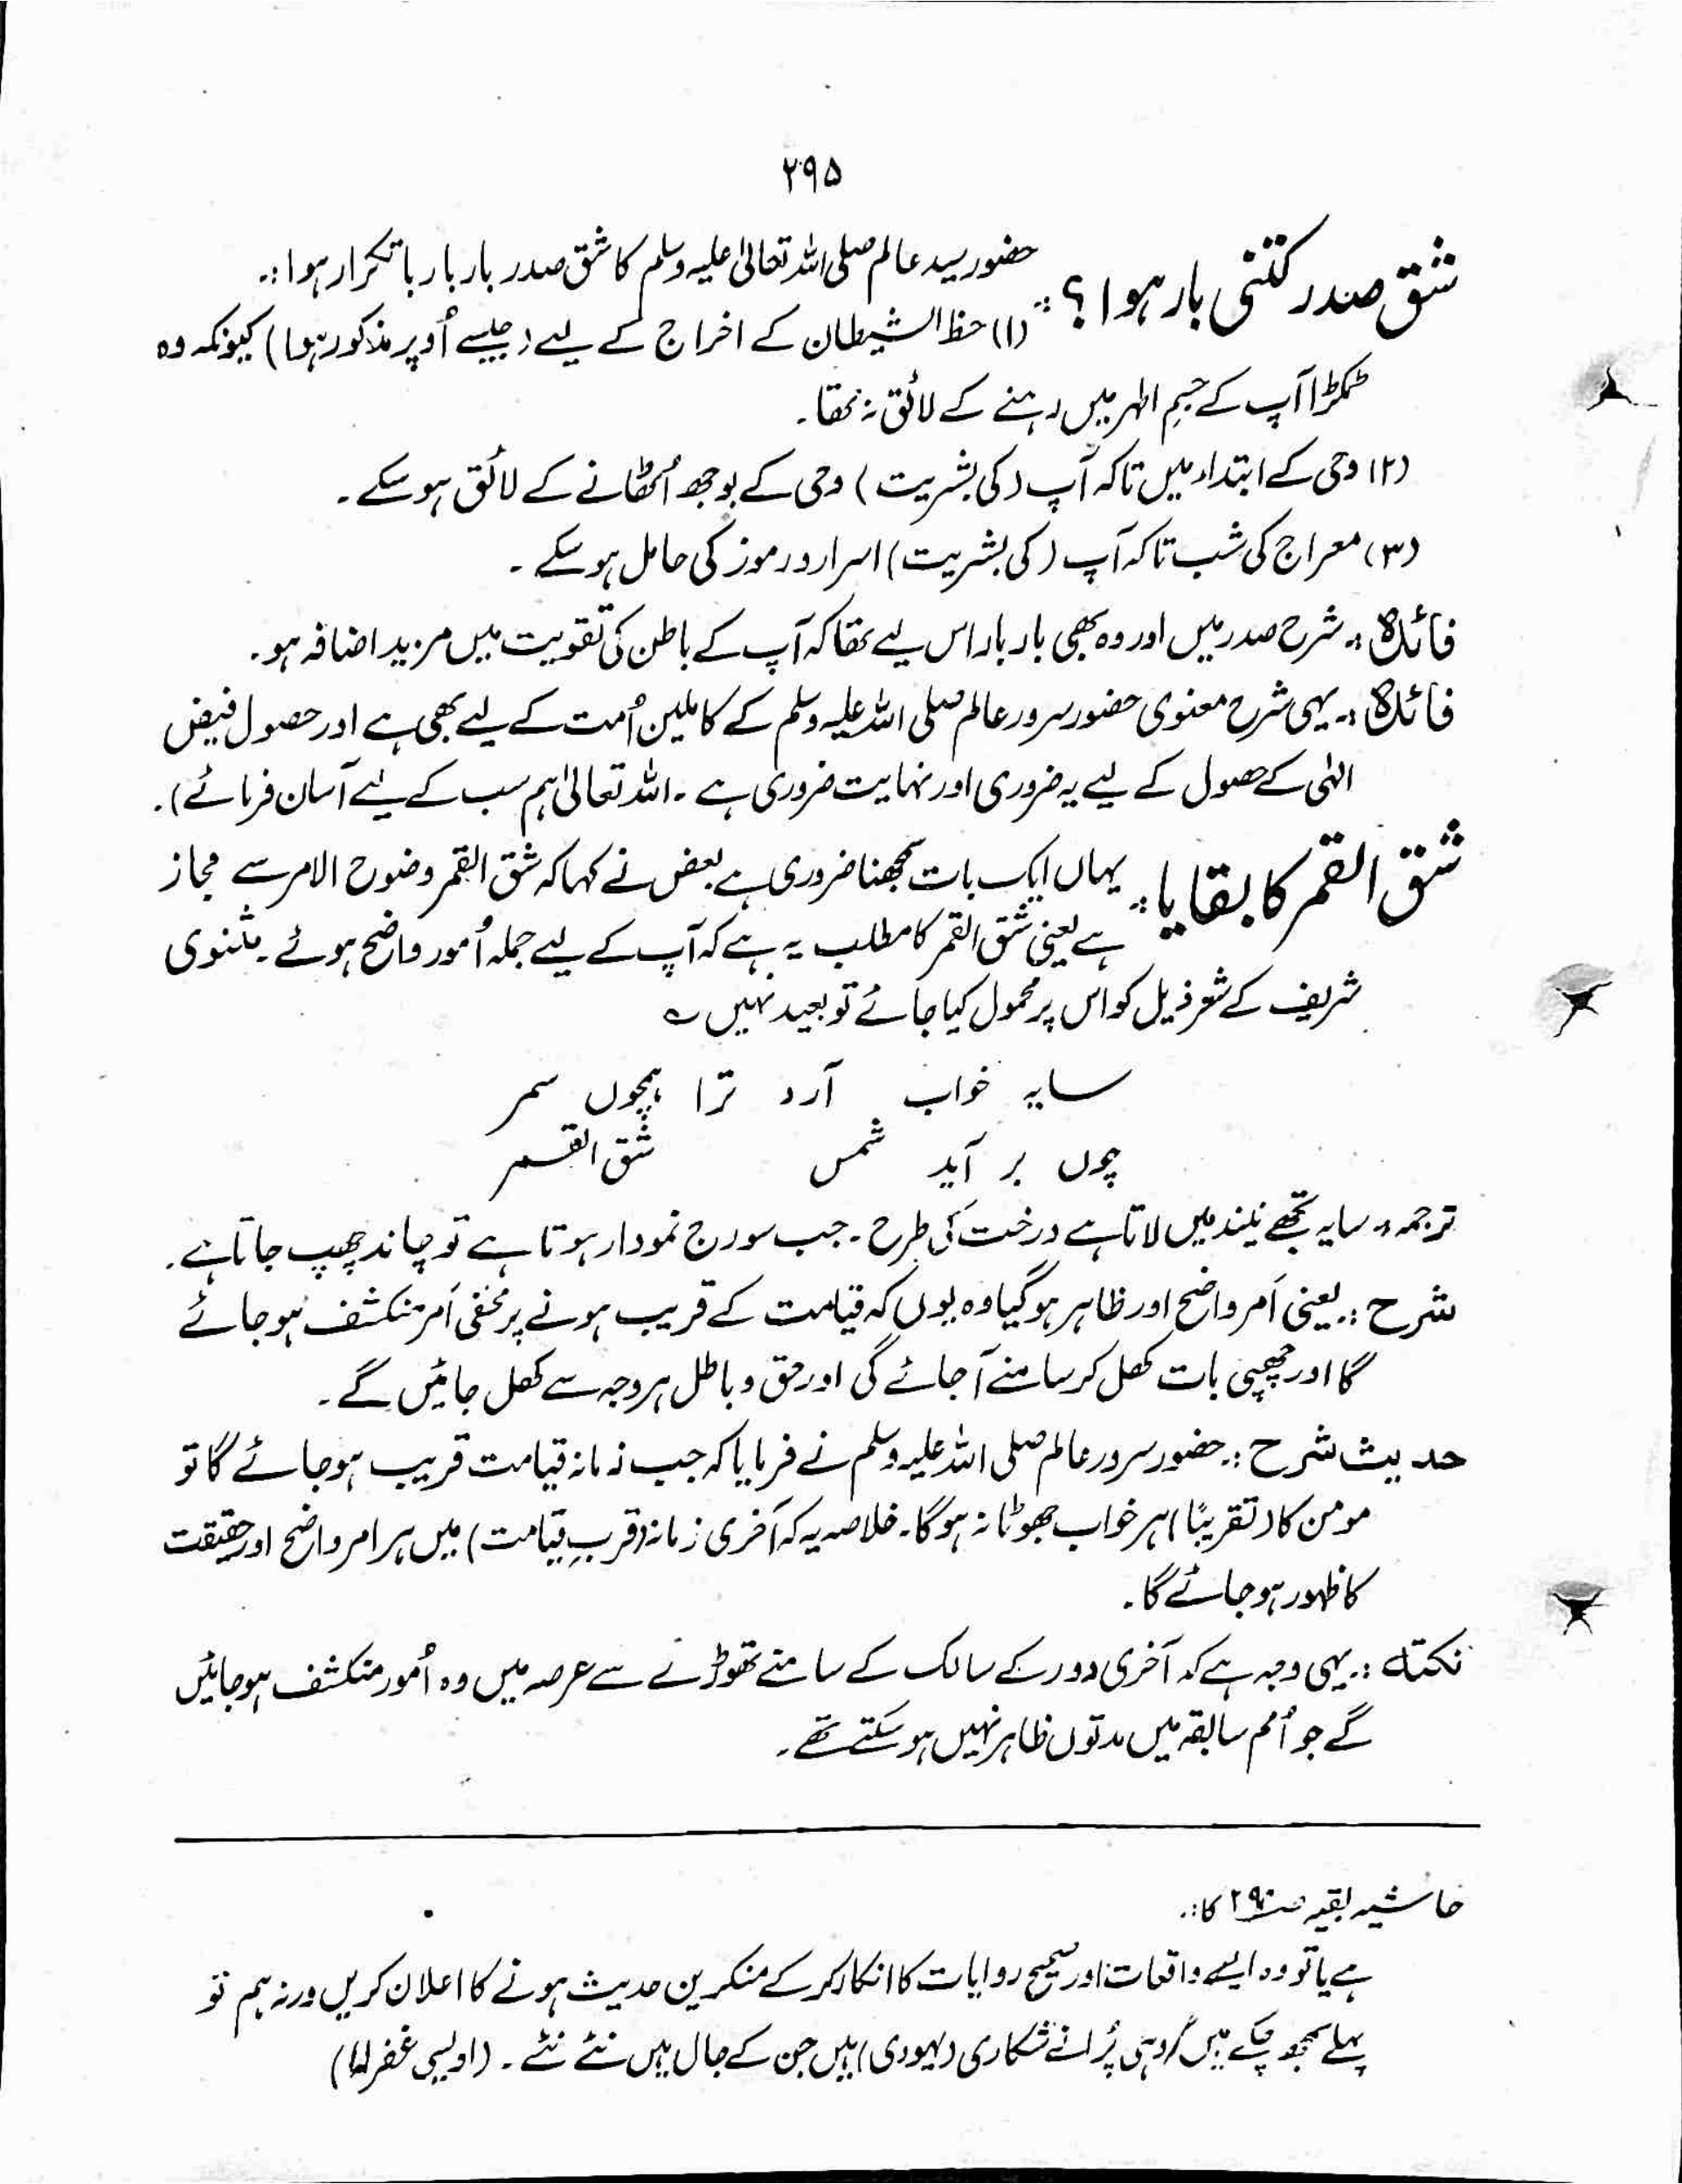 ۲۹۵
شق صدر کتنی بار ہوا ؟ :۔ حضور سید عالم صلی اللہ تعالیٰ علیہ وسلم کا شق صدر بار بار باتکرار ہوا :۔
(۱) حظ الشیطان کے اخراج کے لیے (جیسے اُوپر مذکور ہوا) کیونکہ وہ
ٹکڑا آپ کے جسمِ اطہر میں رہنے کے لائق نہ تھا۔
(۲) وحی کے ابتداء میں تاکہ آپ (کی بشریت) وحی کے بوجھ اُٹھانے کے لائق ہو سکے۔
(۳) معراج کی شب تاکہ آپ (کی بشریت) اسرار و رموز کی حامل ہو سکے۔
فائدہ :۔ شرح صدر میں اور وہ بھی بار بار اس لیے تھا کہ آپ کے باطن کی تقویت میں مزید اضافہ ہو۔
فائدہ :۔ یہی شرح معنوی حضور سرور عالم صلی اللہ علیہ وسلم کے کاملین اُمت کے لیے بھی ہے اور حصول فیض
الٰہی کے حصول کے لیے یہ ضروری اور نہایت ضروری ہے۔ اللہ تعالیٰ ہم سب کے لیے آسان فرمائے)۔
شق القمر کا بقایا :۔ یہاں ایک بات سمجھنا ضروری ہے بعض نے کہا کہ شق القمر وضوح الامر سے مجاز
ہے یعنی شق القمر کا مطلب یہ ہے کہ آپ کے لیے جملہ اُمور واضح ہوئے۔ مثنوی
شریف کے شعر ذیل کو اس پر محمول کیا جائے تو بعید نہیں ؎
سایہ خواب آرد ترا ہمچوں سمر
چوں بر آید شمس شق القمر
ترجمہ :۔ سایہ تجھے نیند میں لاتا ہے درخت کی طرح۔ جب سورج نمودار ہوتا ہے تو چاند چھپ جاتا ہے۔
شرح :۔ یعنی اَمر واضح اور ظاہر ہو گیا وہ یوں کہ قیامت کے قریب ہونے پر مخفی اَمر منکشف ہو جائے
گا اور چھپی بات کھل کر سامنے آ جائے گی اور حق و باطل ہر وجہ سے کھل جائیں گے۔
حدیث شرح :۔ حضور سرور عالم صلی اللہ علیہ وسلم نے فرمایا کہ جب زمانہ قیامت قریب ہو جائے گا تو
مومن کا (تقریبًا) ہر خواب جھوٹا نہ ہوگا۔ خلاصہ یہ کہ آخری زمانہ (قربِ قیامت) میں ہر امر واضح اور حقیقت
کا ظہور ہو جائے گا۔
نکتہ :۔ یہی وجہ ہے کہ آخری دور کے سالک کے سامنے تھوڑے سے عرصہ میں وہ اُمور منکشف ہو جائیں
گے جو اُمم سابقہ میں مدتوں ظاہر نہیں ہو سکتے تھے۔
حاشیہ بقیہ کا :۔
ہے یا تو وہ ایسے واقعات اور صحیح روایات کا انکار کر کے منکرین حدیث ہونے کا اعلان کریں ورنہ ہم تو
پہلے سمجھ چکے ہیں کہ وہی پُرانے شکاری (یہودی) ہیں جن کے جال ہیں نئے نئے۔ (اویسی غفرلہٗ)